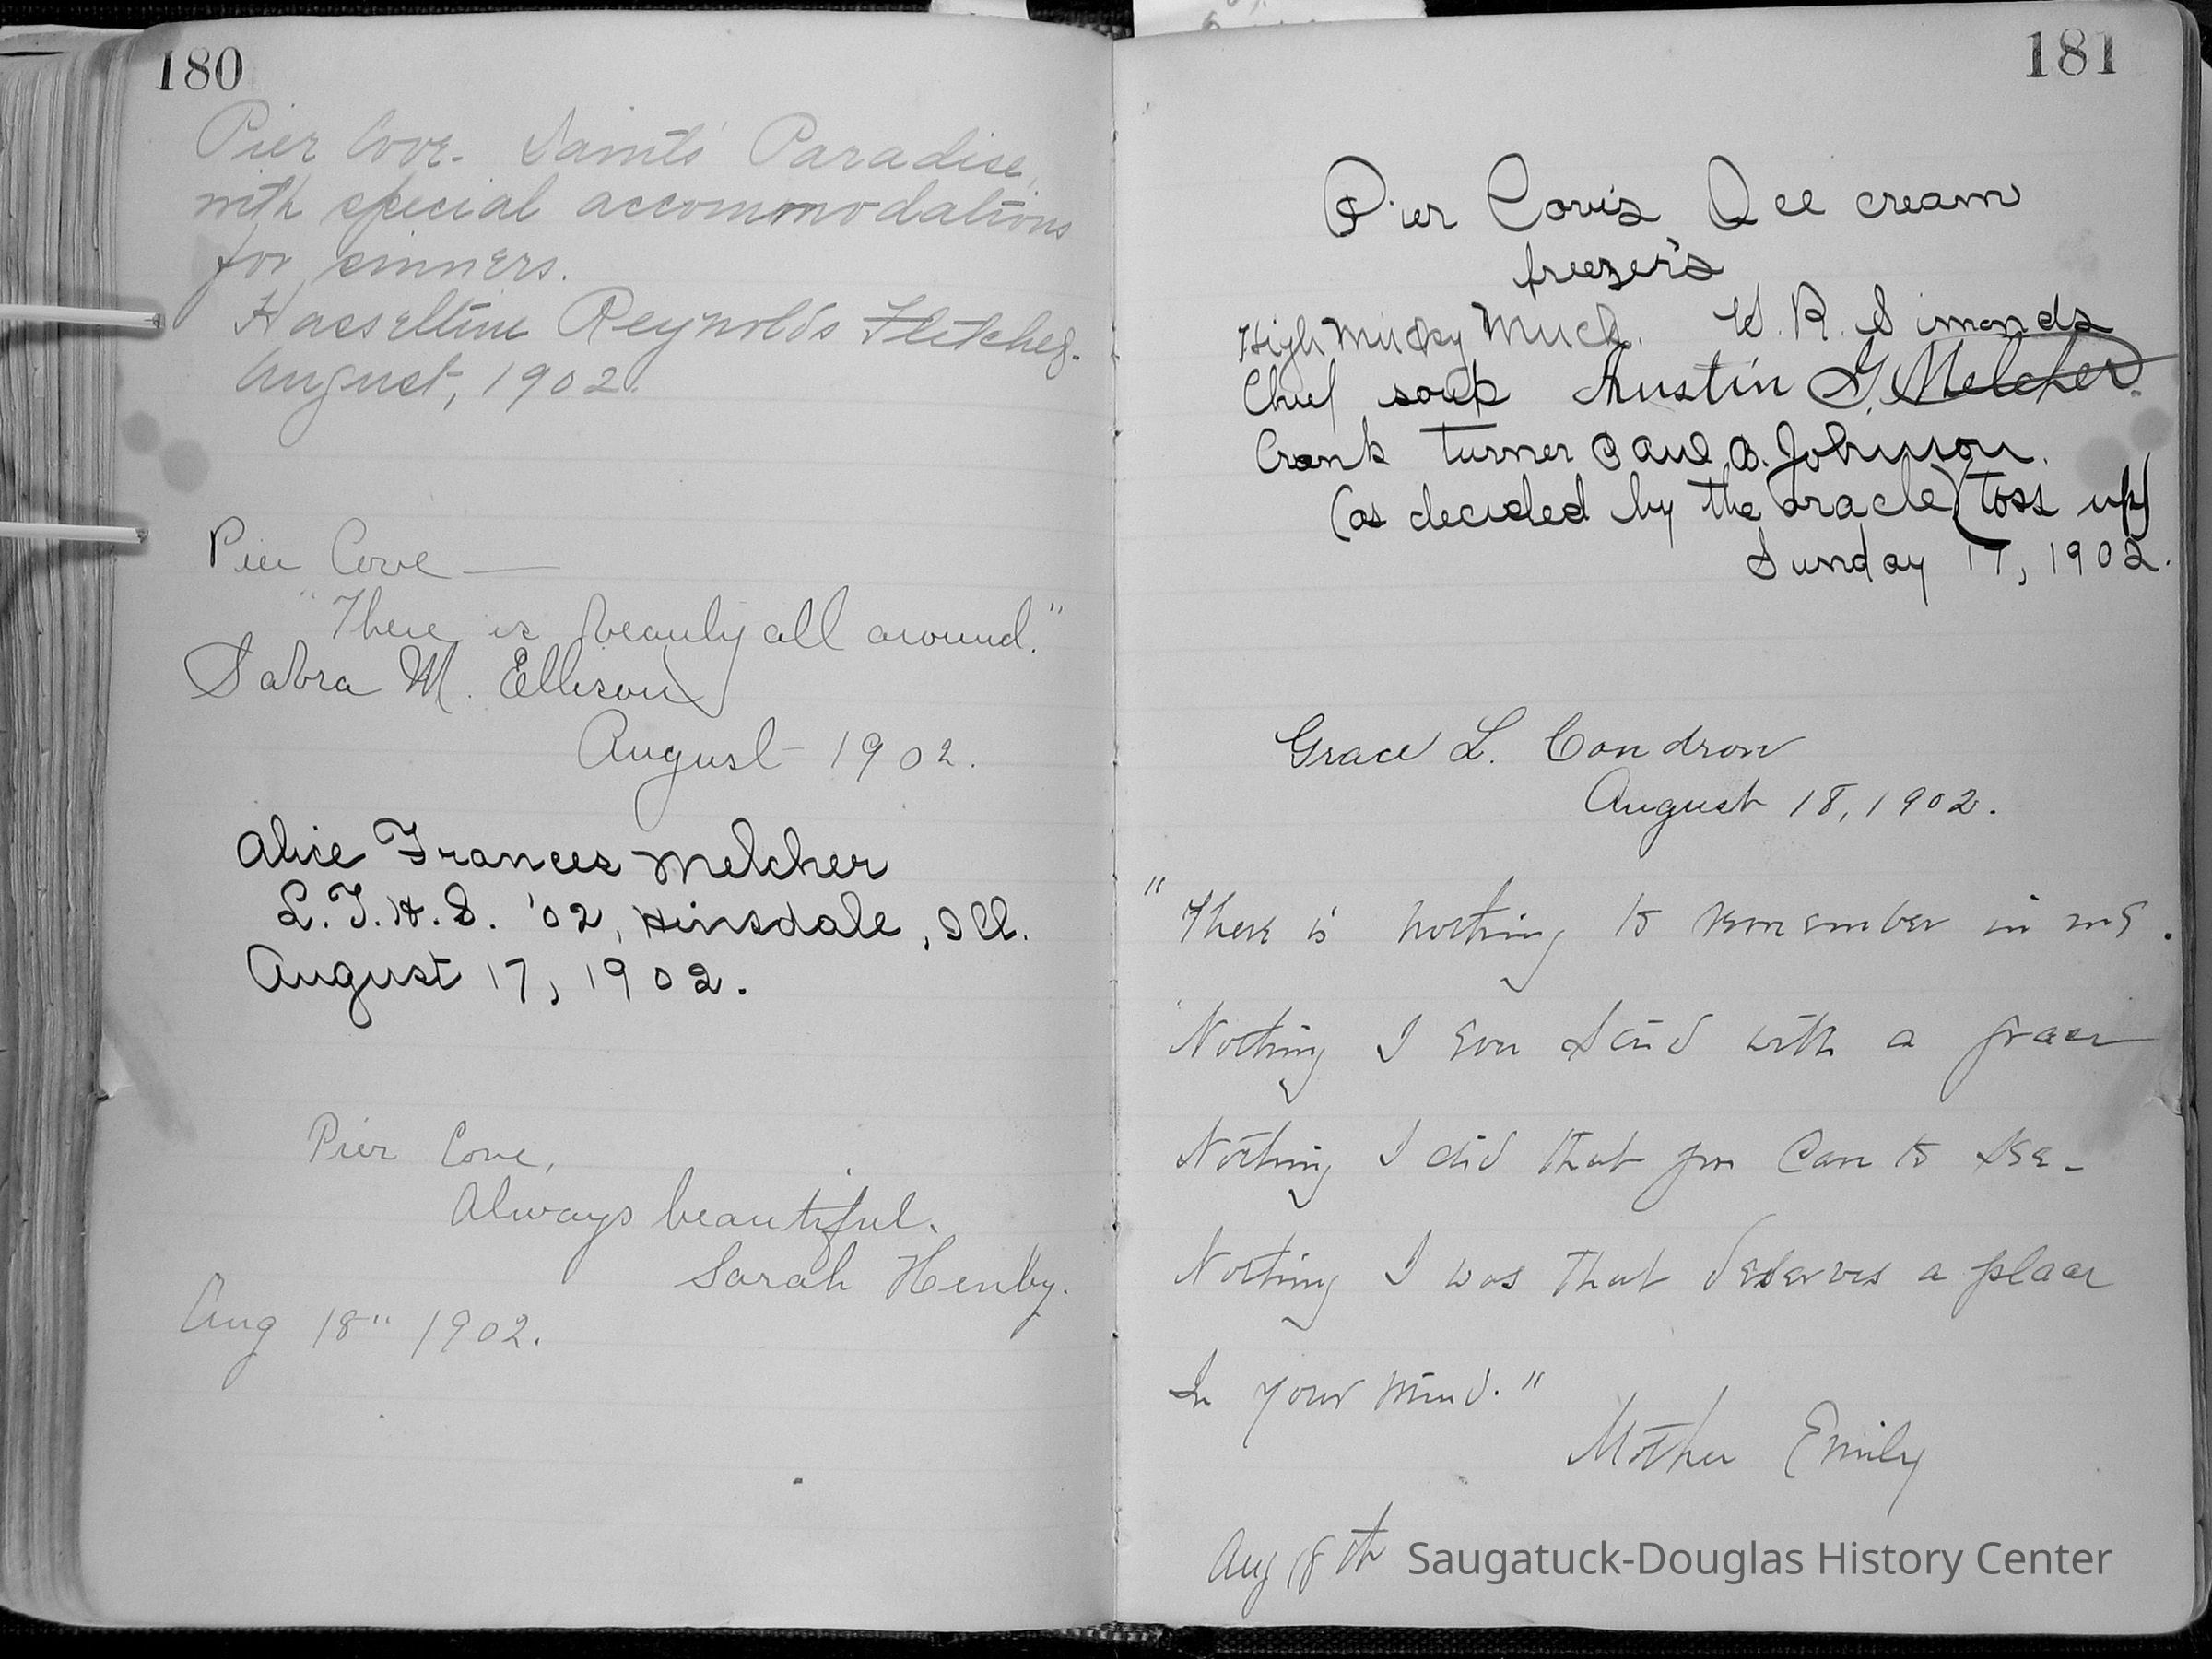 180
Pier Cove. Saints' Paradise,
with special accommodations
for sinners.
Hasseltine Reynolds Fletcher.
August, 1902.
Pier Cove —
"There is beauty all around."
Sabra M. Ellison
August 1902.
Alice Frances Melcher
L.T.H.S. '02, Hinsdale, Ill.
August 17, 1902.
Pier Cove,
Always beautiful.
Sarah Henby.
Aug 18" 1902.
181
Pier Cove's Ice cream
freezer's
High Mucky Muck. W. R. Simonds
Chief soak Austin G. Melcher.
Crank turner Paul B. Johnson.
(as decided by the oracle) (toss up)
Sunday 17, 1902.
Grace L. Condron
August 18, 1902.
"There is nothing to remember in me.
Nothing I ever said with a grace
Nothing I did that you care to see -
Nothing I was that deserves a place
In your mind."
Mother Emily
Aug 18th
Saugatuck-Douglas History Center